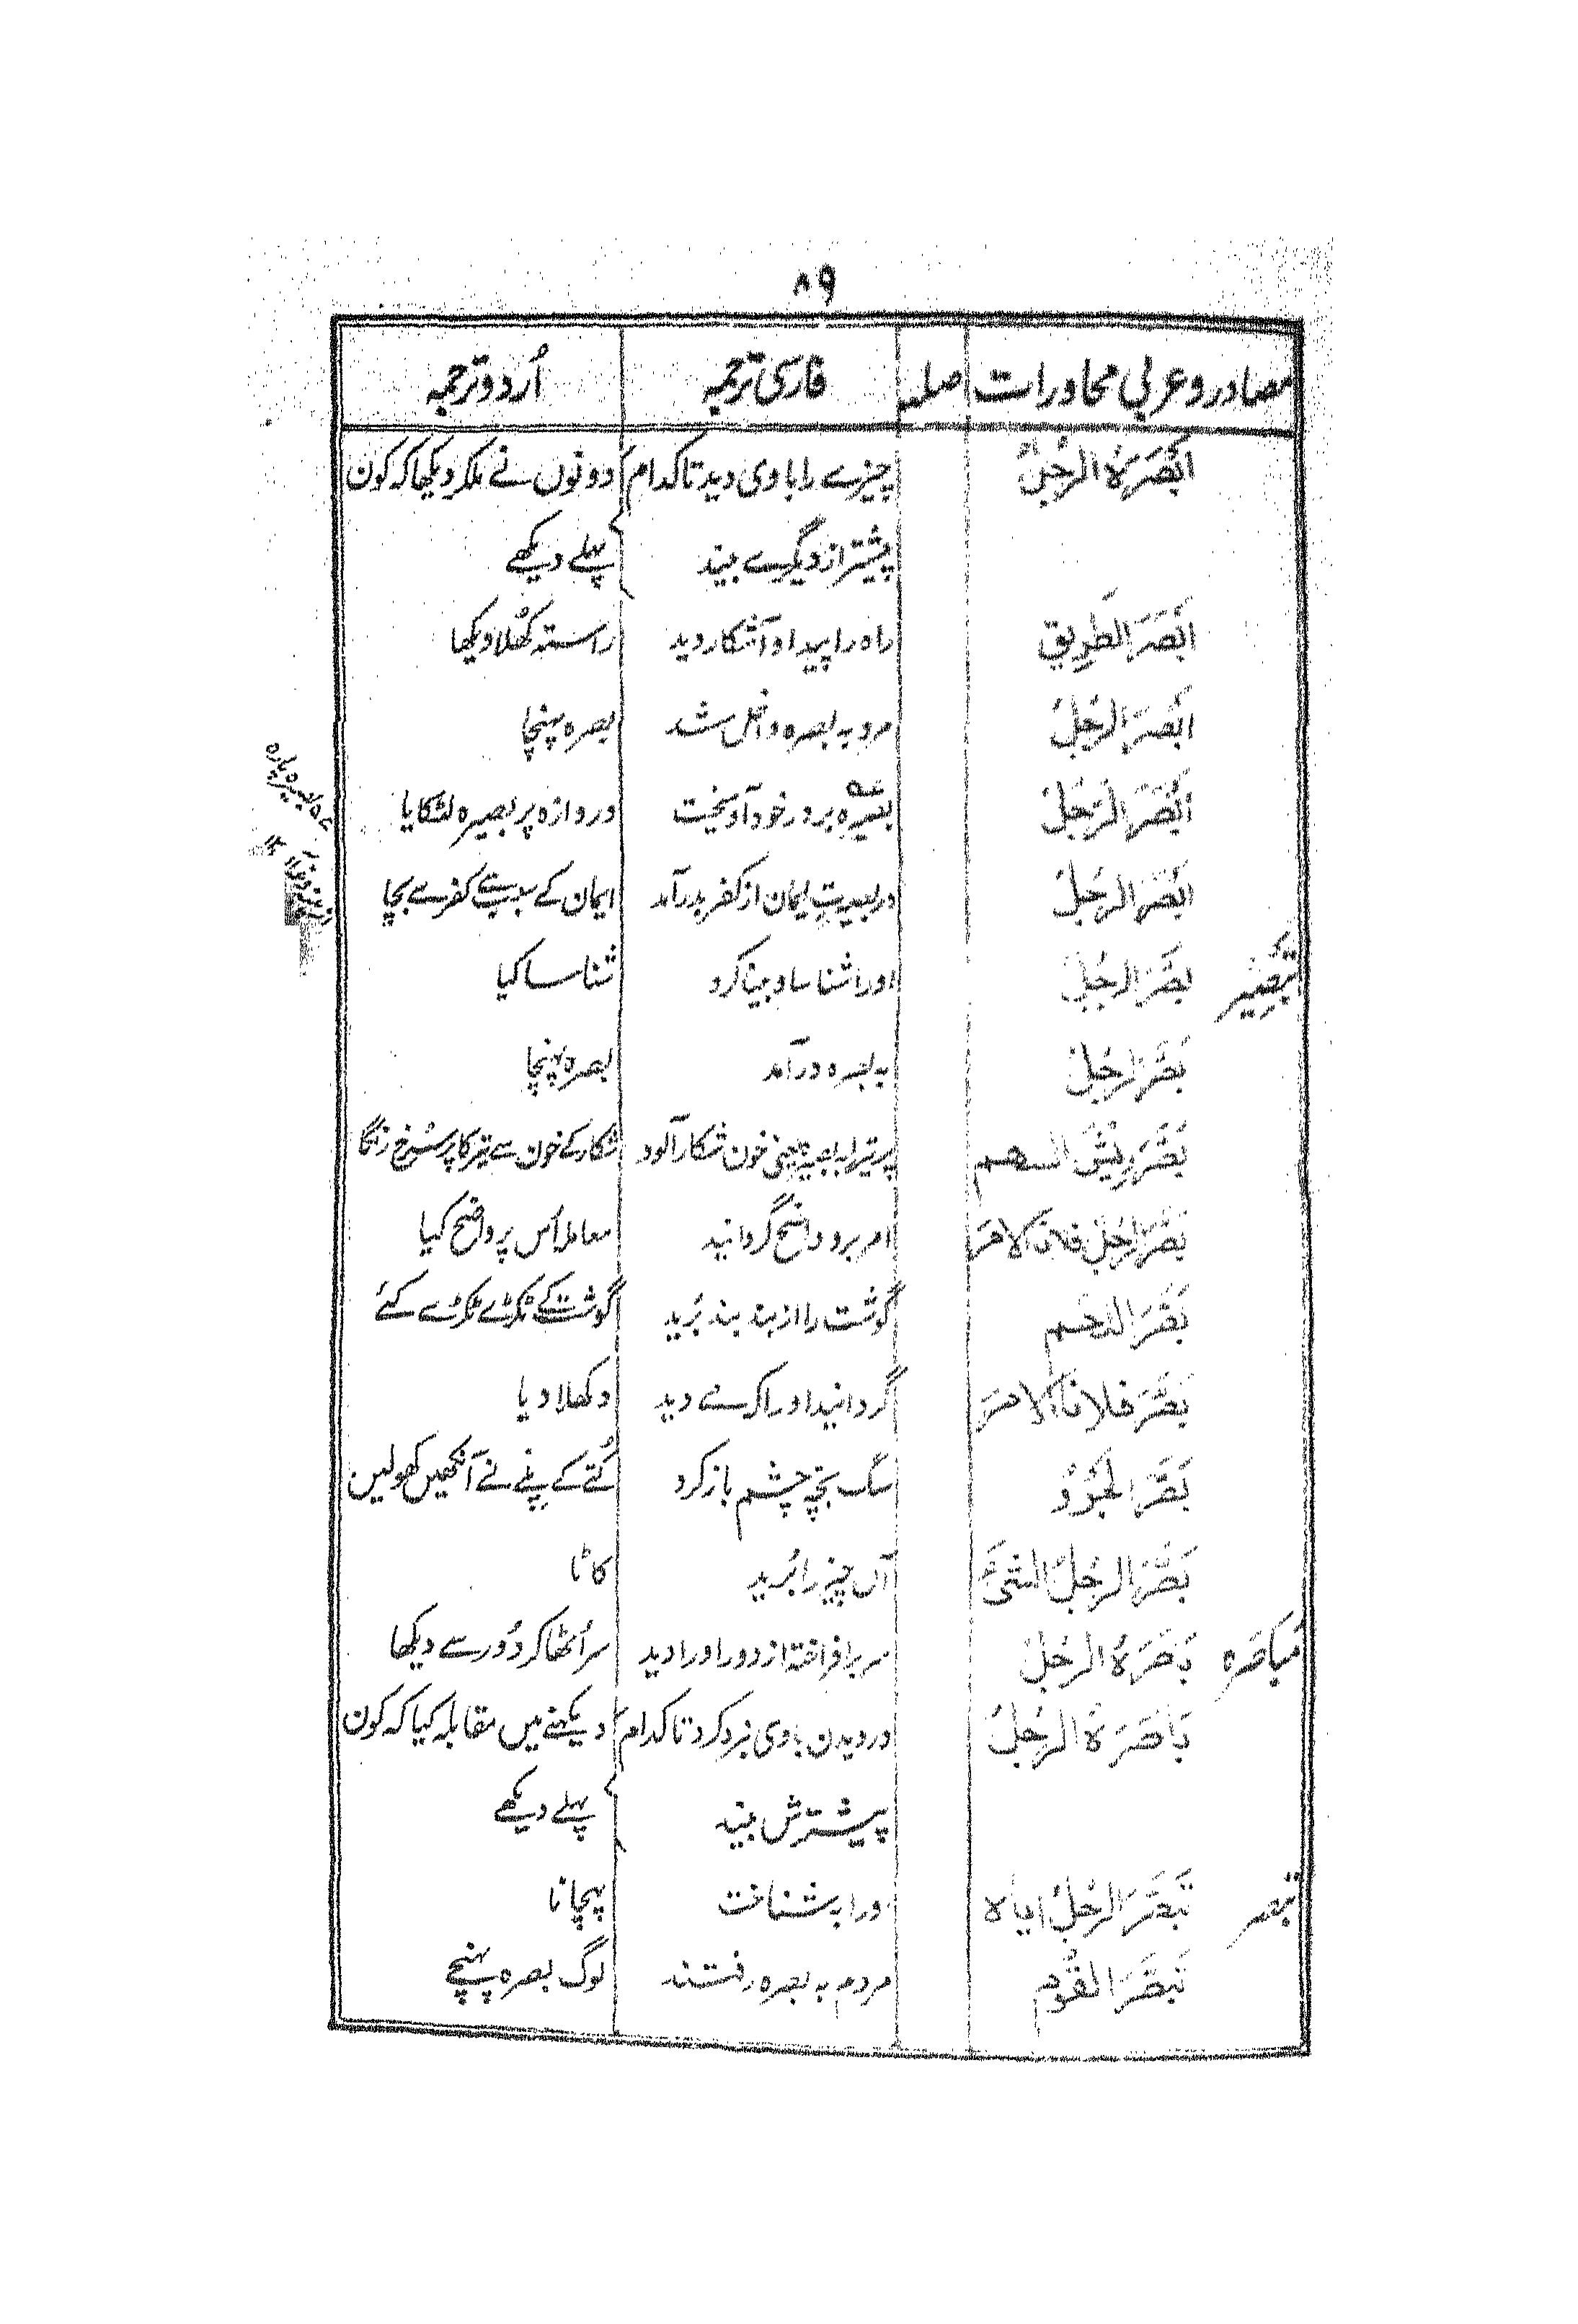 ۸۹
مصادر و عربی محاورات صلہ فارسی ترجمہ اُردو ترجمہ
اَبْصَرَہُ الرَّجُلُ چیزے را با وی دید تا کدام دونوں نے ملکر دیکھا کہ کون
پیشتر از دیگرے بیند پہلے دیکھے
اَبْصَرَ الطَرِیق راہ را پیدا و آشکار دید راستہ کھُلا دیکھا
اَبْصَرَ الرَّجُلُ مرد بہ بصرہ داخل شد بصرہ پہنچا
اَبْصَرَ الرَّجُلُ بصیرہ بر در خود آویخت دروازہ پر بصیرہ لٹکایا
اَبْصَرَ الرَّجُلُ در بصیرتِ ایمان از کفر بدر آمد ایمان کے سبب سے کفر سے بچا
تَبْصِیْر بَصَّرَ الرَّجُلَ اورا شناسا و بینا کرد شناسا کیا
بَصَّرَ الرَّجُلُ بہ بصرہ در آمد بصرہ پہنچا
بَصَّرَ رِیْشَ السهم پر تیر را بہ بصیرہ یعنی خون شکار آلود شکار کے خون سے تیر کا پر سُرخ رنگا
بَصَّرَ الرَّجُلُ فلانا الامرَ امر برو واضح گردانید معاملہ اُس پر واضح کیا
بَصَّرَ اللحم گوشت را از بند بند بُرید گوشت کے ٹکڑے ٹکڑے کئے
بَصَّرَ فلاناً الامرَ گردانید اورا کہ سے دید دکھلا دیا
بَصَّرَ الجَرْوُ سگ بچہ چشم باز کرد کُتے کے پِلّے نے آنکھیں کھولیں
بَصَّرَ الرَّجُلُ الشئَ آں چیز را بُرید کاٹا
مُبَاصَرہ بَاصَرَہُ الرَّجُلُ سر بر افراختہ از دور اورا دید سر اُٹھا کر دُور سے دیکھا
بَاصَرَہُ الرَّجُلُ در دیدن با وی نبرد کرد تا کدام دیکھنے میں مقابلہ کیا کہ کون
پیشترش بیند پہلے دیکھے
تبصر تَبَصَّرَ الرَّجُلُ ایاہ ورا بہ شناخت پہچانا
تَبَصَّرَ القَوْم مردم بہ بصرہ رفتند لوگ بصرہ پہنچے